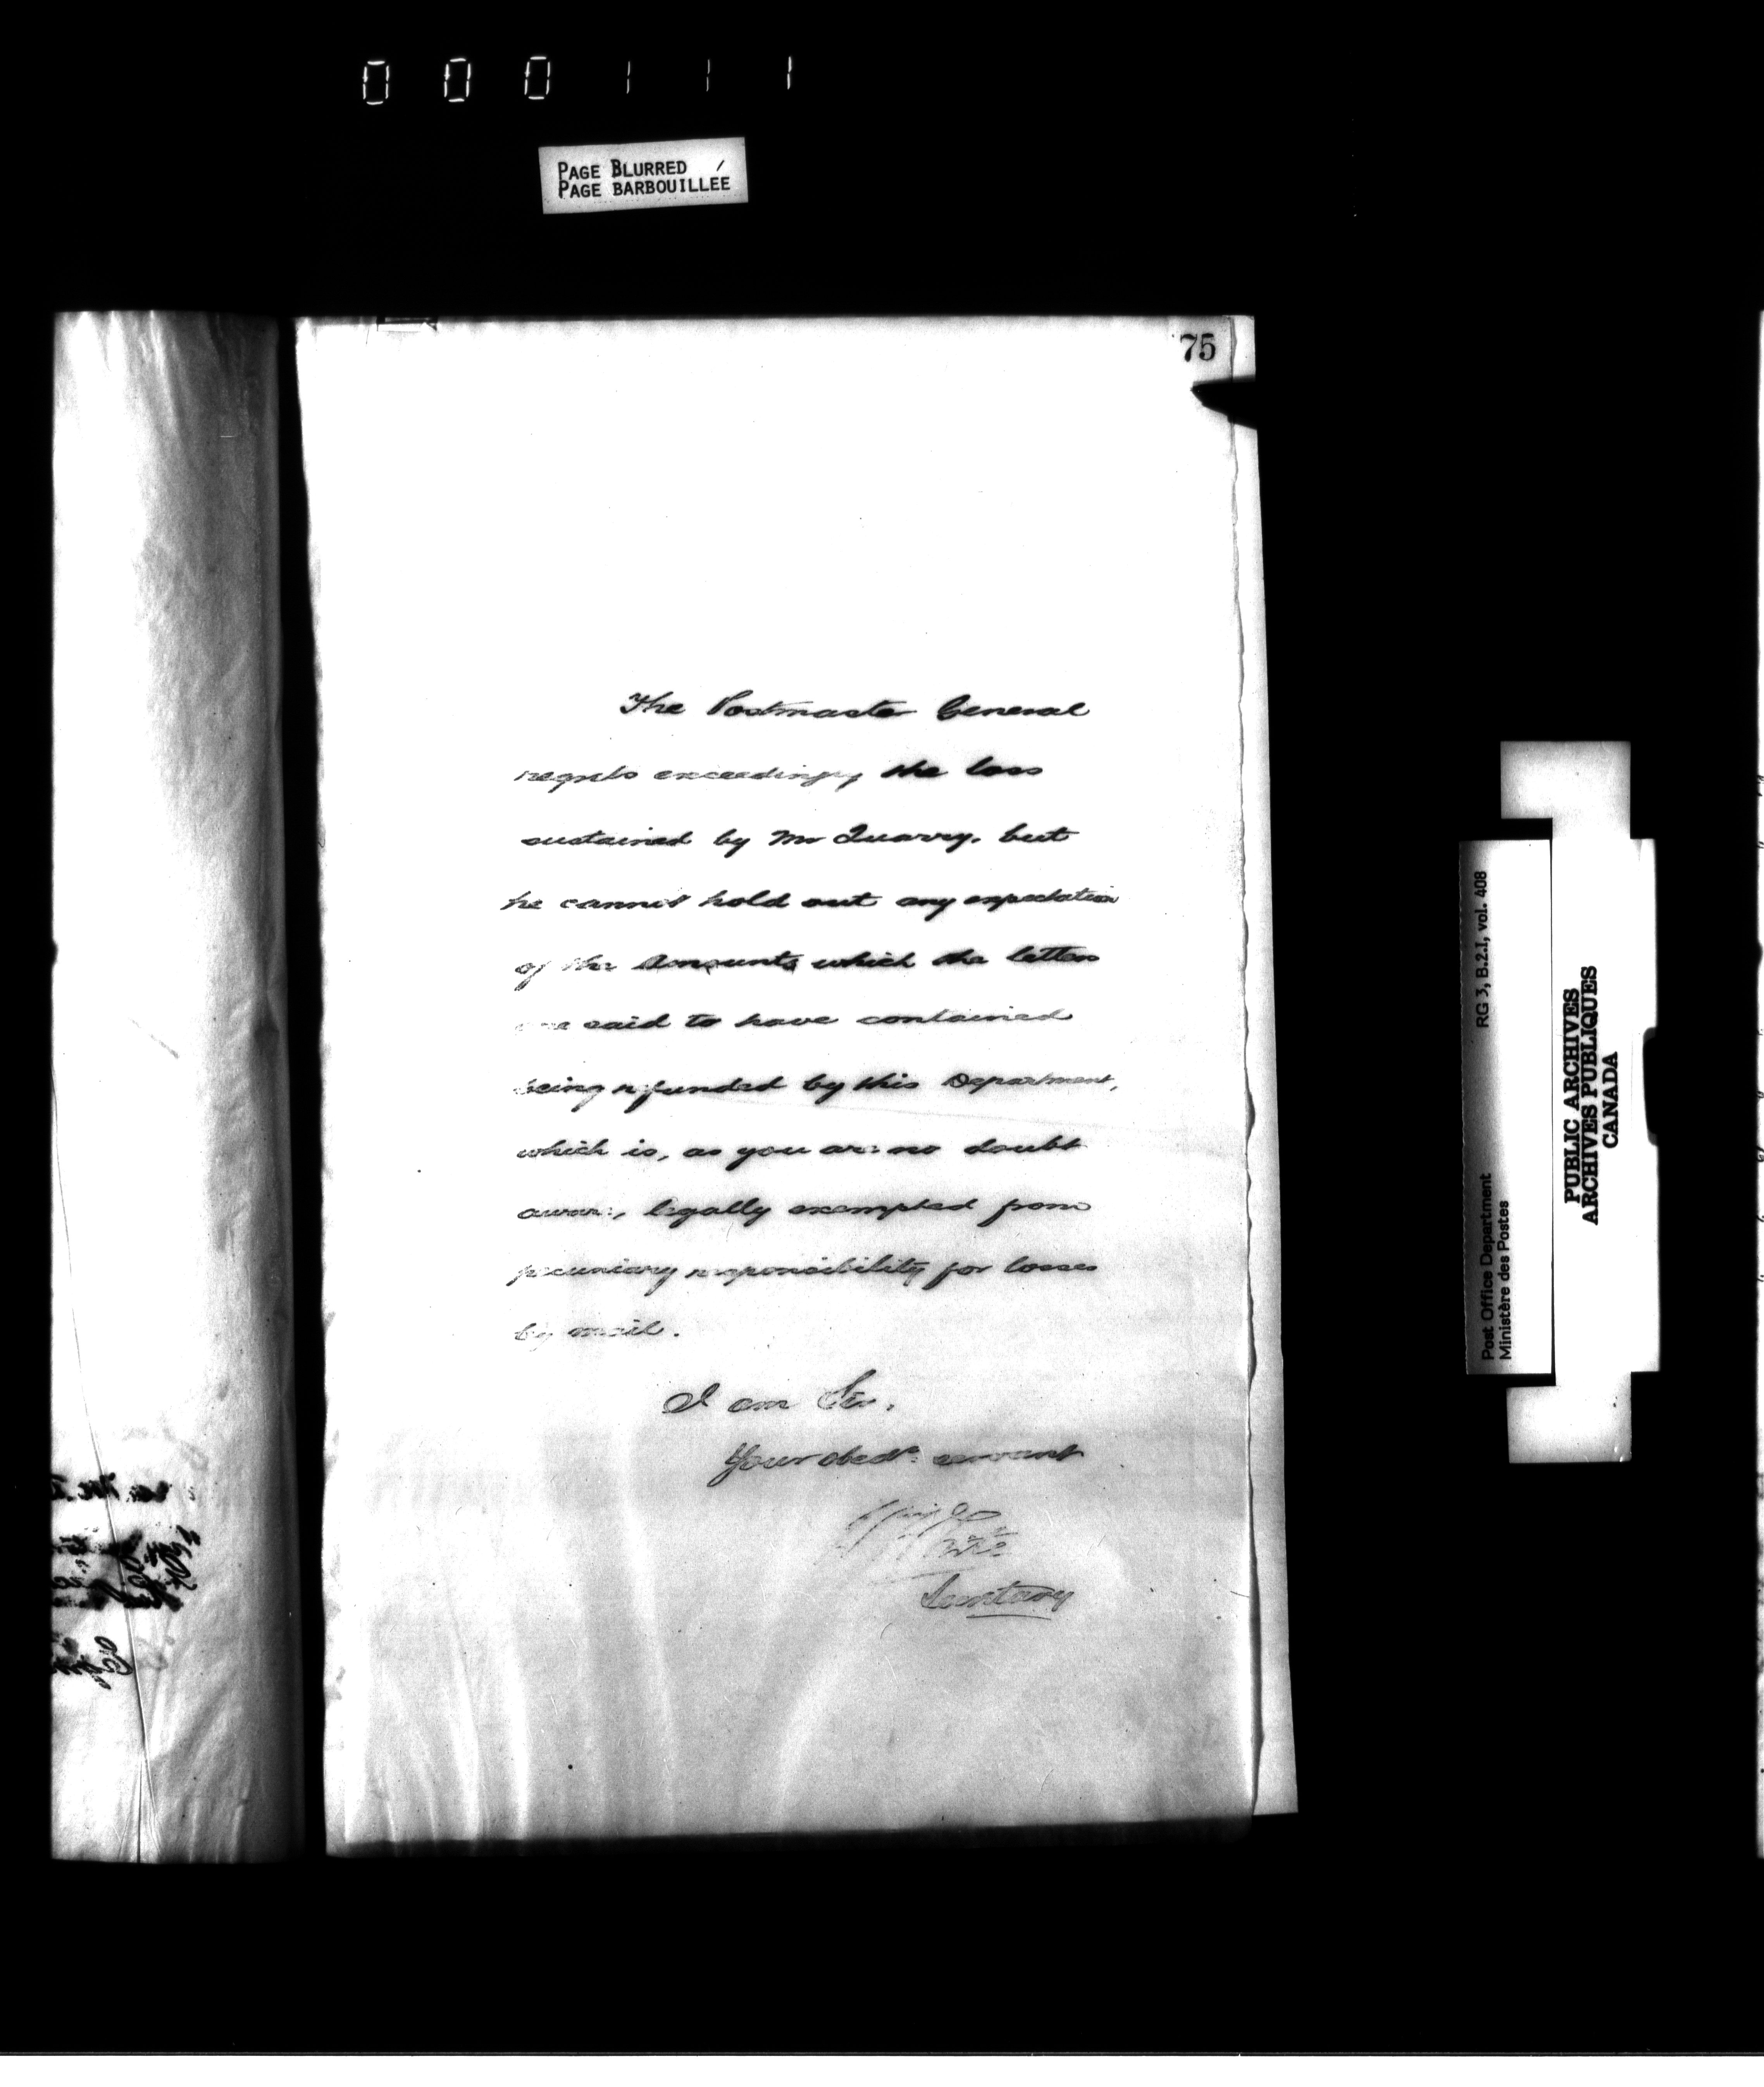 000111
PAGE BLURRED
PAGE BARBOUILLÉE
75
The Postmaster General
regrets exceedingly the loss
sustained by Mr Quarry, but
he cannot hold out any expectation
of the Amounts which the letters
are said to have contained
being refunded by this Department,
which is, as you are no doubt
aware, legally exempted from
pecuniary responsibility for losses
by mail.
I am Sir,
Your obedt. servant
Secretary
RG 3, B.2.1, vol. 408
Post Office Department
Ministère des Postes
PUBLIC ARCHIVES
ARCHIVES PUBLIQUES
CANADA